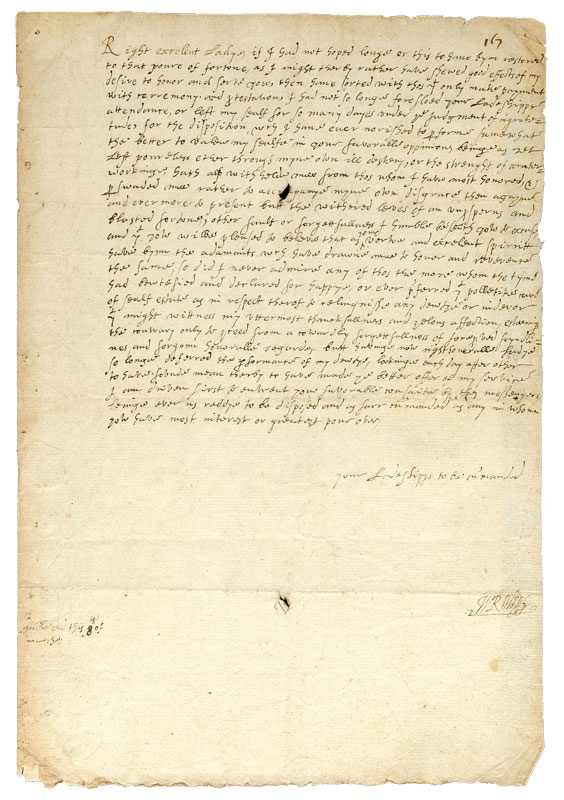 Right excelent Ladye, if I had not hoped longe or this to have byn restored
to that poure of fortune, as I might therby rather have shewed good effects of my
desire to honor and serve yow, then have sorted with thos yt only make payment
with cerremony and ptestations I had not so longe foresloed your Ladeshipps
attendance, or left my sealf for so many dayes under ye judgment of ingrate-
tudes for the disposition, wch I have ever norished to pforme sumewhat
the better to valew my sealfe in your favorable oppinion, beinge as yet
left poureless ether throug myne own ill desteny, or the strenght of counter
workinge hath all withhelde mee from thos whom I have most honored,
pswaded mee rather to accumpanye myne own disgrace then agayne
and evermore to present but the withered leves of an
blasted fortune; other fault or forgetfullness I humble beseich yow to
and yt yow wilbe pleased to beleve that as your vertue and excelent spirrit
have byne the adamants wch have drawne mee to honor and reverence
the same, so did I never admire any of thos the more whom the tyme
had beutefied and declared for happye, or ever pferred ye pollitike
of sealf estate as in respect therof to relinquishe any dewtye or indevor
yt might wittness my uttermost thanckfullness and zelous affection,
the contrary only to pceed from a cowardly forgettfullness of foregoved
and honorable regardes. but havinge now
so longe deferred the pformance of my dewtye, lookinge each day after other
to have founde mean therby to have made ye better offer of my service
I am driven first to entreat your favorable by thes messengers
beinge ever as reddye to be disposed and as farr cummanded as any in whom
yow have most interest or greatest poure over.
your Ladeshipps to be cummanded
W Ralegh
this 8 of
marche
16